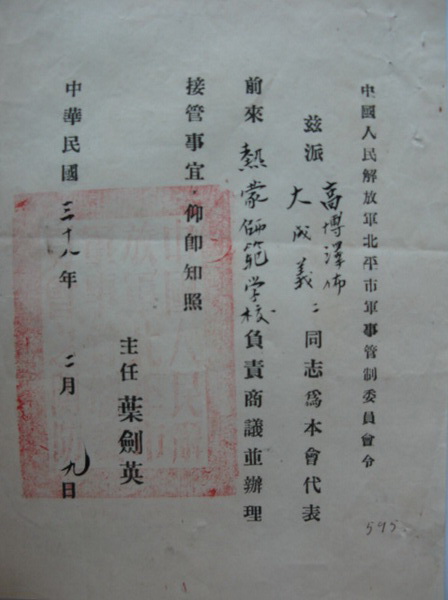 中國人民解放軍北平市軍事管制委員會令
茲派 高博澤佈
大成義 二同志爲本會代表
前來 熱蒙師範学校 負責商議並辦理
接管事宜·仰卽知照
主任 葉劍英
中華民國 三十八年 二月 九日
595